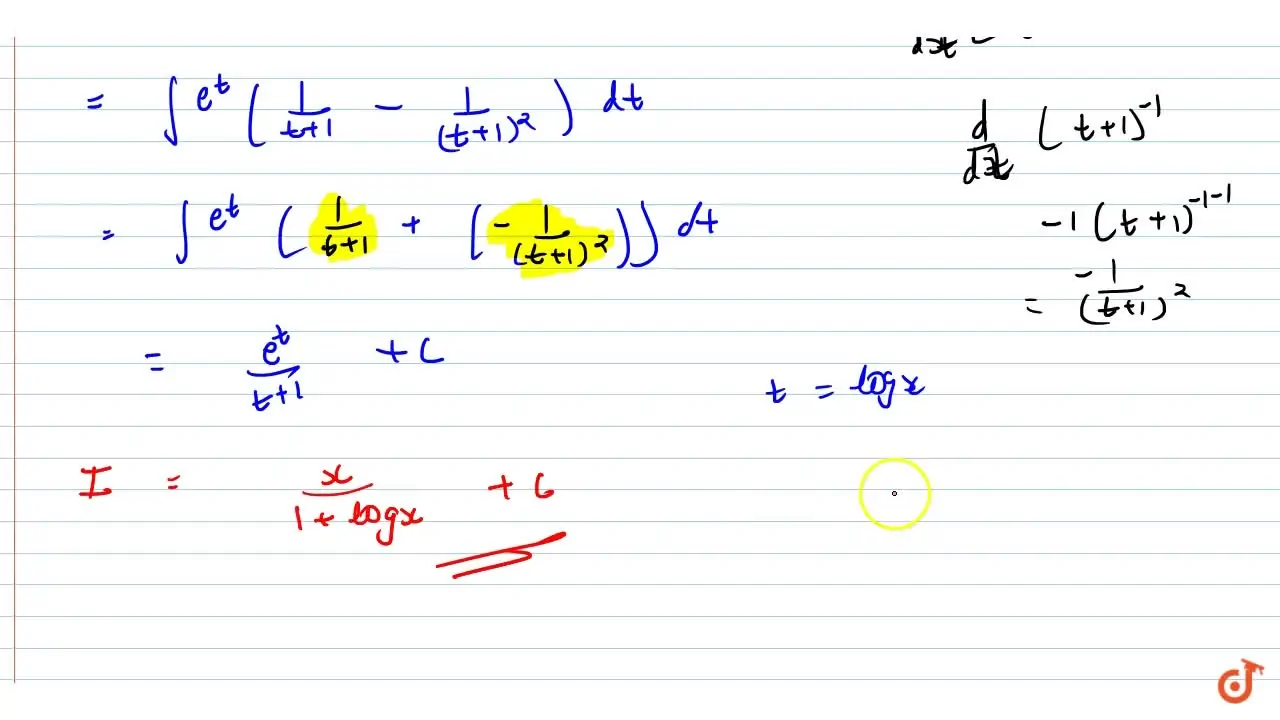 = ∫ e^t ( 1/(t+1) - 1/(t+1)^2 ) dt
= ∫ e^t ( 1/(t+1) + ( - 1/(t+1)^2 ) ) dt
= e^t/(t+1) + C
I = x/(1 + log x) + C
d/dt ( t+1)^-1
-1 ( t+1)^-1-1
= -1/(t+1)^2
t = log x